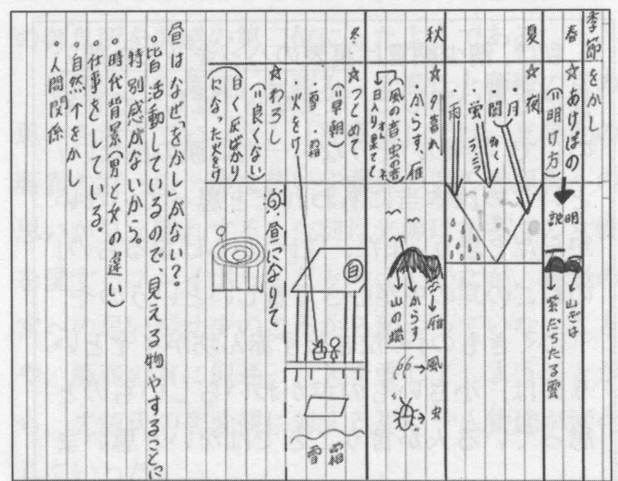 季節をかし
春 ☆あけぼの
(=明け方)
説明
山ぎは
紫だちたる雲
夏 ☆夜
・月
・闇
・蛍
・雨
秋 ☆夕暮れ
・からす、雁
(風の音、虫の音)
日入り果てて
雁
からす
山の端
風
虫
冬 ☆つとめて
(=早朝)
・雪・霜
・火をけ
白
霜
雪
☆わろし
(=良くない)
白く灰ばかり
になった火をけ
昼になりて
昼はなぜ「をかし」がない?
・皆活動しているので、見える物やすることに
特別感がないから。
・時代背景(男と女の違い)
・仕事をしている。
・自然↑をかし
・人間関係